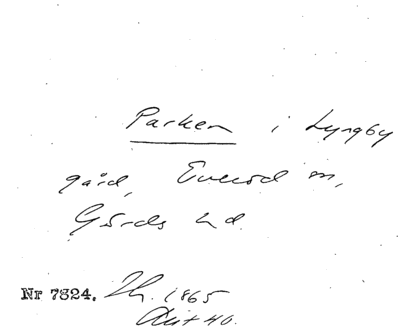 Parken i Lyngby
gård, Everöd sn,
Gärds hd.
Nr 7824. Th. 1865
Aut 40.